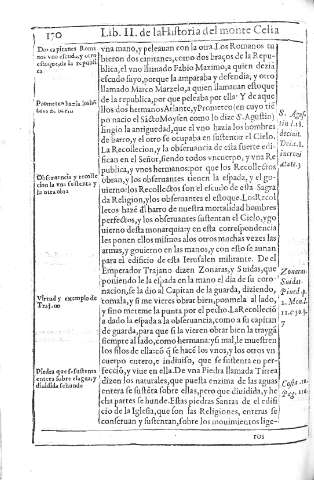 150
Lib. II. de la Historia del monte Celia
Dos capitanes Roma
nos vno escudo, y otro
estoque, de la republi
ca
vna mano, y peleauan con la otra. Los Romanos tu
uieron dos capitanes, como dos braços de la Repu-
blica, el vno llamado Fabio Maximo, a quien dezia
escudo suyo, porque la amparaua y defendia, y otro
llamado Marco Marzelo, a quien llamauan estoque
de la republica, por que peleaba por ella Y de aque
llos dos hermanos Atlante, y Prometeo (en cuyo tiẽ
po nacio el Sãcto Moysen como lo dize S. Agustin)
fingio la antiguedad, que el vno hazia los hombres
de barro, y el otro se ocupaba en sustentar el Cielo.
La Recolleccion, y la obseruancia de esta fuerte edifi
can en el Señor, siendo todos vn cuerpo, y vna Re
publica, y vnos hermanos, por que los Recollectos
obran, y los obseruantes tienen la espada, y el go-
uierno: los Recollectos son el escudo de esta Sagra
da Religion, y los obseruantes el estoque. Los Recol
letos hazẽ d barro de nuestra mortalidad hombres
perfectos, y los obseruantes sustentan el Cielo, y go
uierno desta monarquia: y en esta correspondencia
les ponen ellos mismos a los otros muchas vezes las
armas, y gouierno en las manos, y con esto se aunan
para el edificio de esta Ierusalen militante. De el
Emperador Trajano dizen Zonaras, y Suidas, que
poniendo le la espada en la mano el dia de su coro-
nacion, se la dio al Capitan de la guarda, diziendo,
tomala, y si me vieres obrar bien, ponmela al lado,
y sino meteme la punta por el pecho. La Recolleciõ
a dado la espada a la obseruancia, como a su capitan
de guarda, para que si la vieren obrar bien la trayga
siempre al lado, como hermana: y si mal, le muestren
los filos de ella: cõ q̃ se hazẽ los vnos, y los otros vn
cuerpo entero, e indiuiso, que se sustenta en per-
fecciõ, y viue en ella. De vna Piedra llamada Tirrea
dizen los naturales, que puesta enzima de las aguas
entera se sustẽta sobre ellas, pero que diuidida, y he
cha partes se hunde. Estas piedras Santas de el edifi
cio de la Iglesia, que son las Religiones, enteras se
conseruan y sustentan, sobre los mouimientos lige-
ros
Obseruancia y recolle
cion la vna sustenta y
la otra obra
Virtud y exemplo de
Trajano
Piedra que se sustenta
entera sobre el agua, y
diuidida se hunde